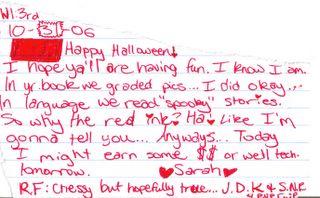 W1.3rd
10-31-06
Happy Halloween!
I hope ya'll are having fun. I know I am.
In yr.book we graded pics... I did okay...
In language we read "spooky" stories.
So why the red ink? Ha! Like I'm
gonna tell you... Anyways... Today
I might earn some $$ or well tech.
tomorrow.
Sarah
RF: Chessy but hopefully true... J.D.K & S.N.P